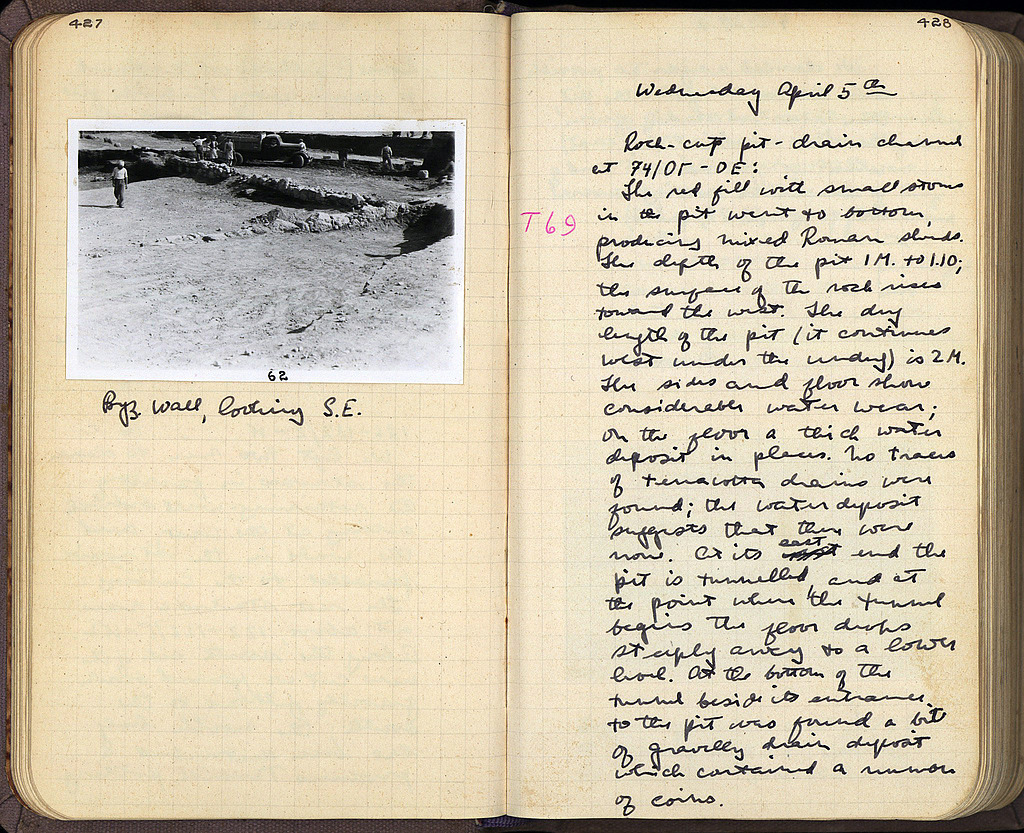 427
62
Byz. Wall, looking S.E.
428
Wednesday April 5th
Rock-cut pit-drain channel
at 74/ΟΓ-ΟΕ:
The red fill with small stones
T69
in the pit went to bottom,
producing mixed Roman sherds.
The depth of the pit 1 M. to 1.10;
the surface of the rock rises
toward the west. The dug
length of the pit (it continues
west under the undug) is 2 M.
The sides and floor show
considerable water wear;
on the floor a thick water
deposit in places. No traces
of terracotta drains were
found; the water deposit
suggests that there were
none. At its east end the
pit is tunnelled, and at
the point where the tunnel
begins the floor drops
steeply away to a lower
level. At the bottom of the
tunnel beside its entrance
to the pit was found a bit
of gravelly drain deposit
which contained a number
of coins.